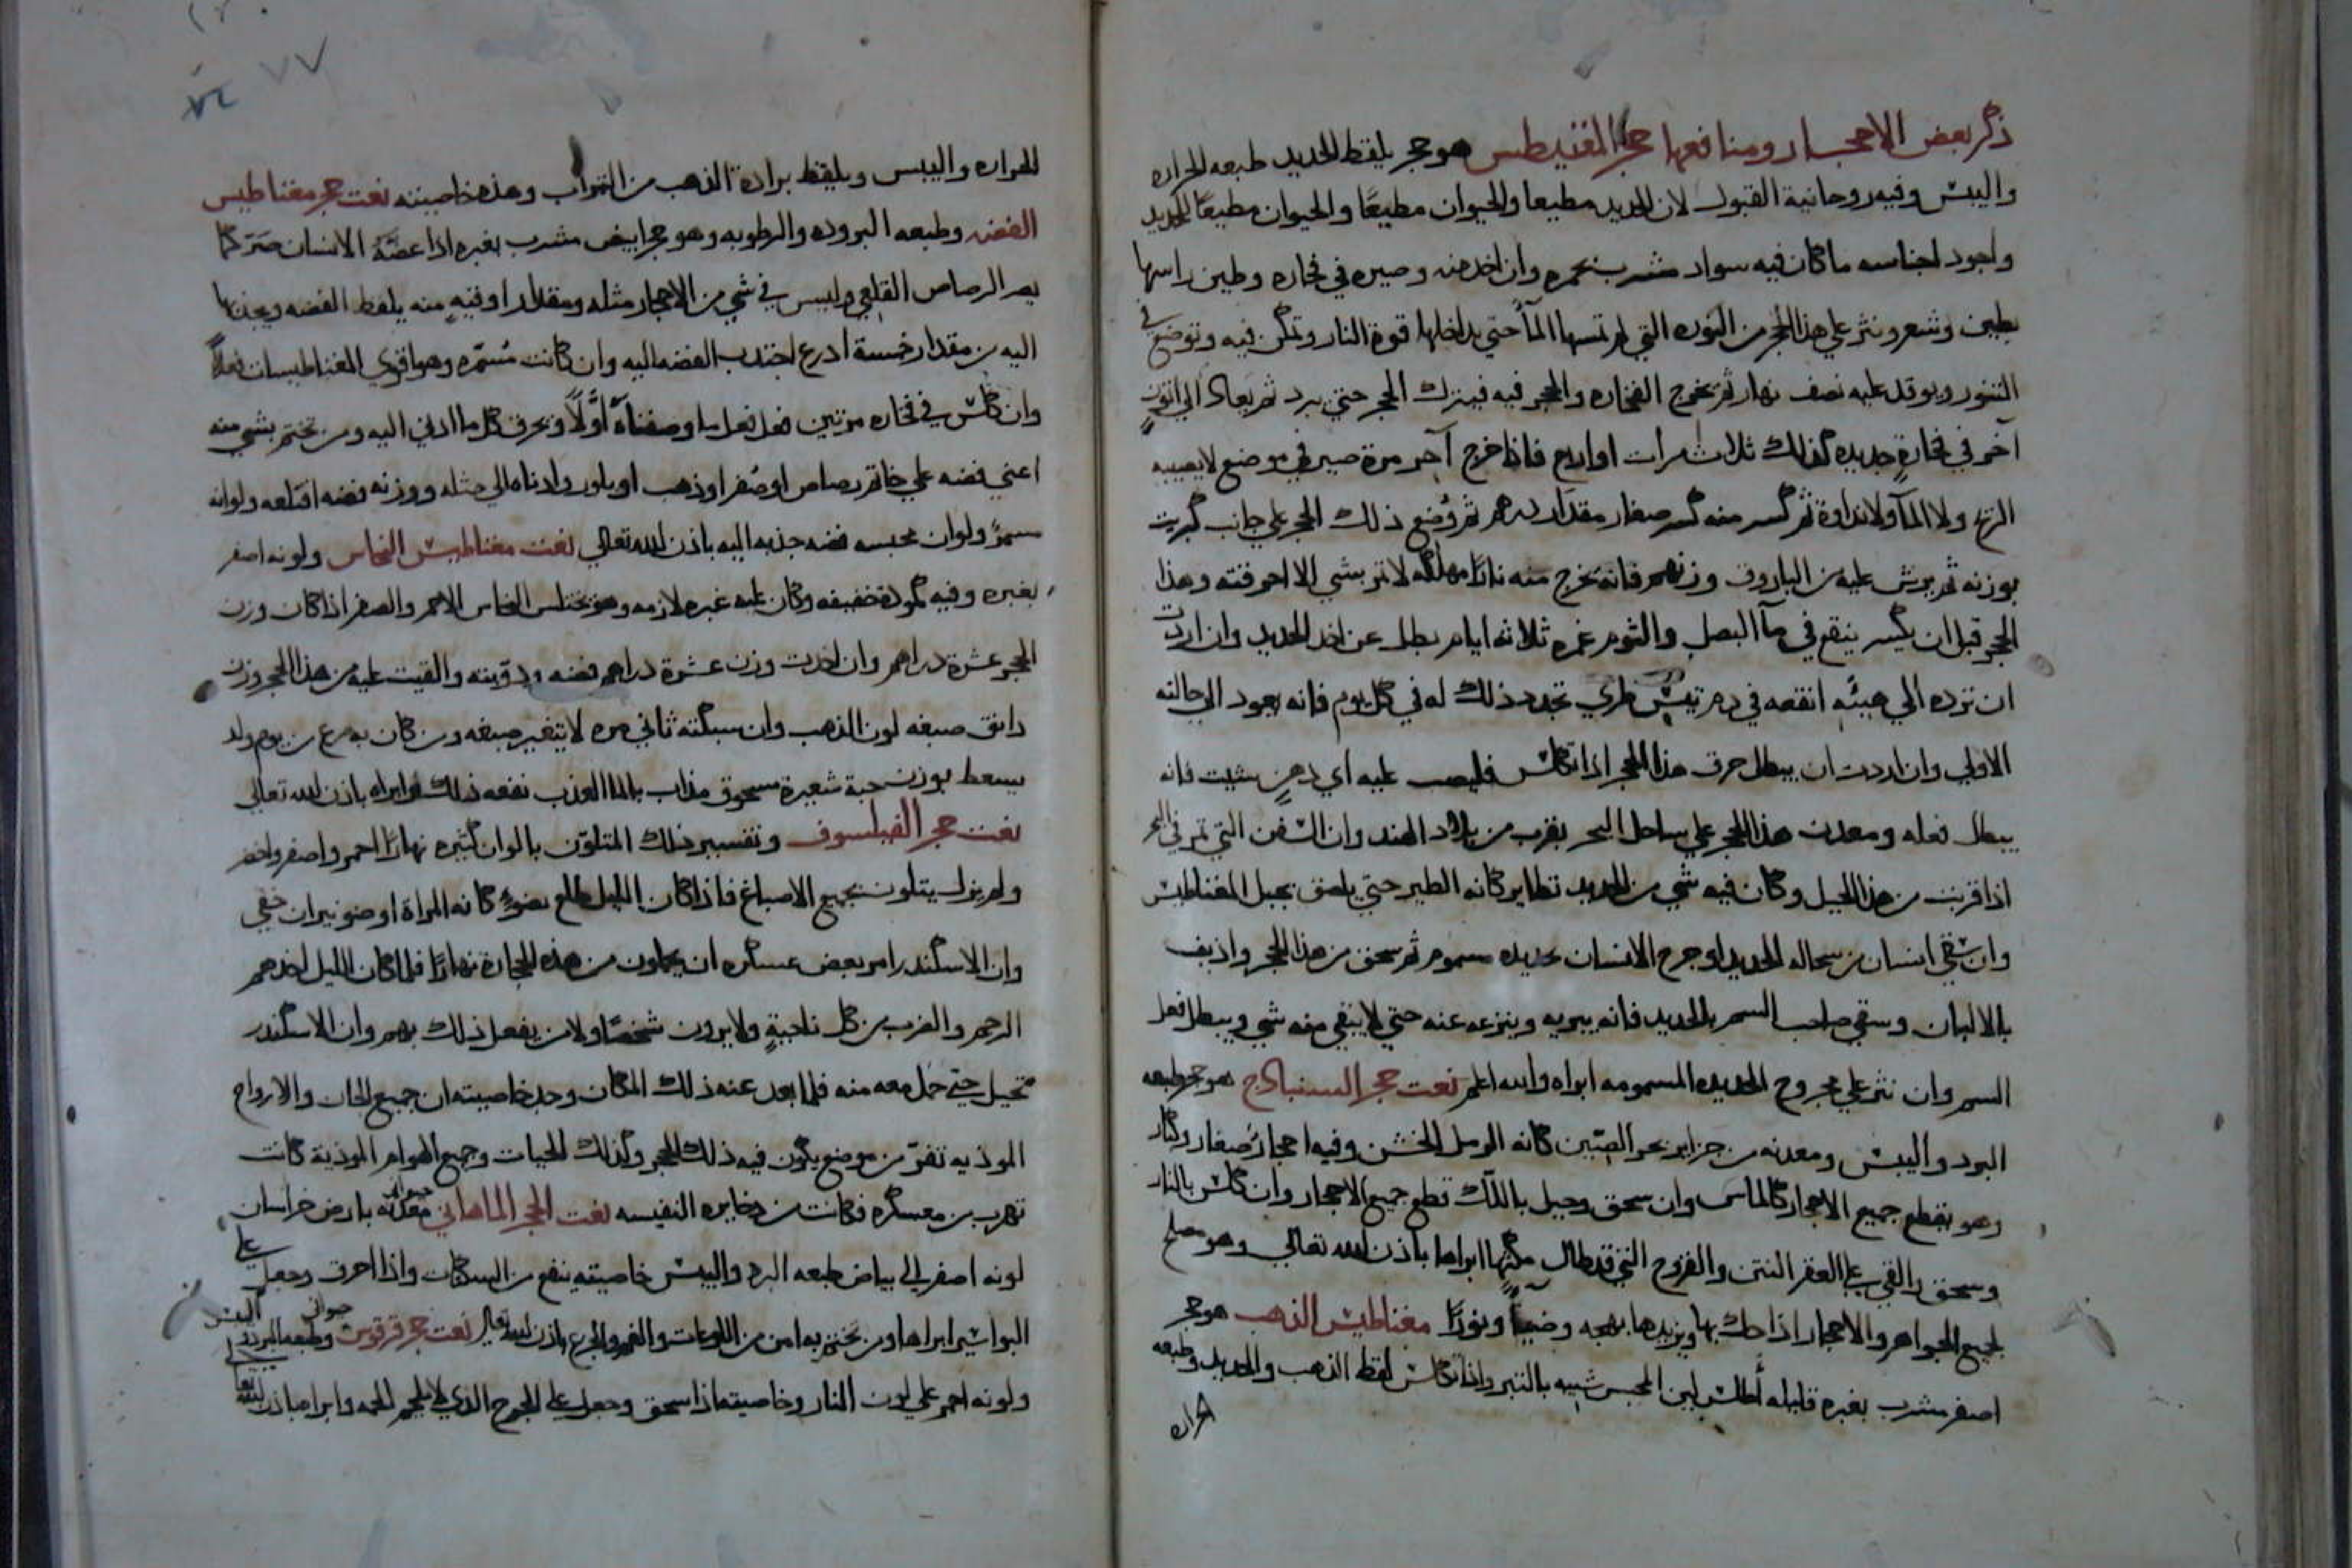 ذكر بعض الاحجار ومنافعها حجر المغنيطس هو حجر يلقط الحديد طبعه الحراره
واليبس وفيه روحانية القبول لان الحديد مطيعا والحيوان مطيعًا والحيوان مطيعًا للحديد
واجود اجناسه ما كان فيه سواد مشرب بحمره وان اخد منه وصيره في فخاره وطين راسها
بطين وشعر ونثر علي هذا الحجر من النوره التي لم تمسها المآ حتي يداخلها قوة النار وتمكن فيه وتوضع في
التنور ويوقد عليه نصف نهار ثم تخرج الفخاره والحجر فيه فيترك الحجر حتي يبرد ثم يعاد الي اتون
آخر في فخارةٍ جديده كذلك ثلاث مرات او اربع فاذا خرج آخر مرة صيره في موضع لا يصيبه
الريح ولا المآ ولا نداوة ثم كسر منه كسر صغار مقدار درهم ثم وُضع ذلك الحجر علي جانب كبريت
بوزنه ثم يرش عليه من الباروق وزنهم فانه تخرج منه نارًا مهلكه لا تمر بشي الا احرقته وهذا
الحجر قبل ان يكسر ينقع في مآ البصل والثوم غمره ثلاثه ايام بطل عن اخد الحديد وان اردت
ان ترده الي هيئه انقعه في دم تيس طري تجدد ذلك له في كل يوم فانه يعود الي حالته
الاولي وان اردت ان يبطل حرق هذا الحجر اذا تكلس فليصب عليه اي دهنٍ شيت فانه
يبطل فعله ومعدن هذا الحجر علي ساحل البحر بقرب من بلاد الهند وان السفن التي تمر في البحر
اذا قربت من هذا الجبل وكان فيه شي من الحديد تطاير كانه الطير حتي يلصق بجبل المغناطيس
وان سُقي انسان من سحاله الحديد او جرح الانسان بحديده مسموم ثم سحق من هذا الحجر واذيف
بالالبان وسقي صاحب السم بالحديد فانه يبريه وينزعه عنه حتي لا يبقي منه شي ويبطل فعل
السم وان نثر علي مجروح الحديده المسمومه ابراه والله اعلم نعت حجر السنبادج هو حجر طبعه
البرد واليبس ومعدنه من جزاير بحر الصين كانه الرمل الخشن وفيه احجار صغار وكبار
وهو يقطع جميع الاحجار كالماس وان سحق وجبل باللّك قطع جميع الاحجار وان كلس بالنار
وسحق والقي علي العقر النتن والقروح التي قد طال مكثها ابراها باذن الله تعالي وهو مصلح
لجميع الجواهر والاحجار اذا حك بها ويزيدها بهجه وضيآءً ونورًا مغناطيس الذهب هو حجر
اصفر مشرب بغبره قليله أطلس لين المجس شبيه بالتبر واذا تكلس لقط الذهب والحديد وطبعه
الحراره
الحراره واليبس ويلقط برادة الذهب من التراب وهذه خاصيته نعت حجر مغناطيس
الفضه وطبعه البروده والرطوبه وهو حجر ابيض مشرب بغبره اذا عضّهُ الانسان صَرَّ كما
يصر الرصاص القلعي وليس في شي من الاحجار مثله ومقدار اوقيه منه يلقط الفضه ويجذبها
اليه من مقدار خمسة ادرع اجتدب الفضه اليه وان كانت مُسَمّره وهو اقوي المغناطيسات فعلاً
وان كلس في فخاره مرتين فعل فعل ما وصفناهُ اوَّلاً ويحرق كل ما ادني اليه ومن تختم بشي منه
اعني فضه علي خاتم رصاص او صُفر او ذهب او بلور وادناه الي مثله ووزنه فضه اقتلعه ولو انه
مسمرً ولو ان بمحبسه فضه جذبه اليه باذن الله تعالي نعت مغناطيس النحاس ولونه اصفر
بغبره وفيه كمودة خفيفه وكان عليه غبره لازمه وهو يختلس النحاس الاحمر والصفر اذا كان وزن
الحجر عشرة دراهم وان اخدت وزن عشرة دراهم فضه ودوّبته والقيت عليه من هذا الحجر وزن
دانق صبغه لون الذهب وان سبكته ثاني مره لا يتغير صبغه ومن كان به صرع من يوم ولد
يسعط بوزن حبة شعيرة مسحوق مذاب بالما العذب نفعه ذلك وابراه باذن الله تعالي
نعت حجر الفيلسوف وتفسير ذلك المتلوّن بالوان كثيره نهارًا احمر واصفر واخضر
ولم يزل يتلون بجميع الاصباغ فاذا كان الليل طلع بضوءٍ كانه المراة او ضو نيران خفي
وان الاسكندر امر بعض عسكره ان يحملون من هذه الحجارة نهارًا فلما كان الليل اخدهم
الرجم والضرب من كل ناحيةٍ ولا يرون شخصًا ولا من يفعل ذلك بهم وان الاسكندر
تحيل حتي حمل معه منه فلما بعد عنه ذلك المكان وجد خاصيته ان جميع الجان والارواح
الموذيه تفرّ من موضع يكون فيه ذلك الحجر وكذلك الحيات وجميع الهوام الموذية كانت
تهرب من معسكره فكانت من دخايره النفيسه نعت الحجر الماهاني معدنه بارض خراسان
لونه اصفر الي بياض طبعه البرد واليبس خاصيته ينفع من السكات واذا احرق وجعل علي
البواسير ابراها ومن تختم به امن من اللوعات والغم والجزع باذن الله تعالي نعت حجر قرقوس حيواني وطبعه البرد واليبس
ولونه احمر علي لون النار وخاصيته اذا سحق وجعل علي الجرح الذي لا يلحم الحمه وابراه باذن الله تعالي